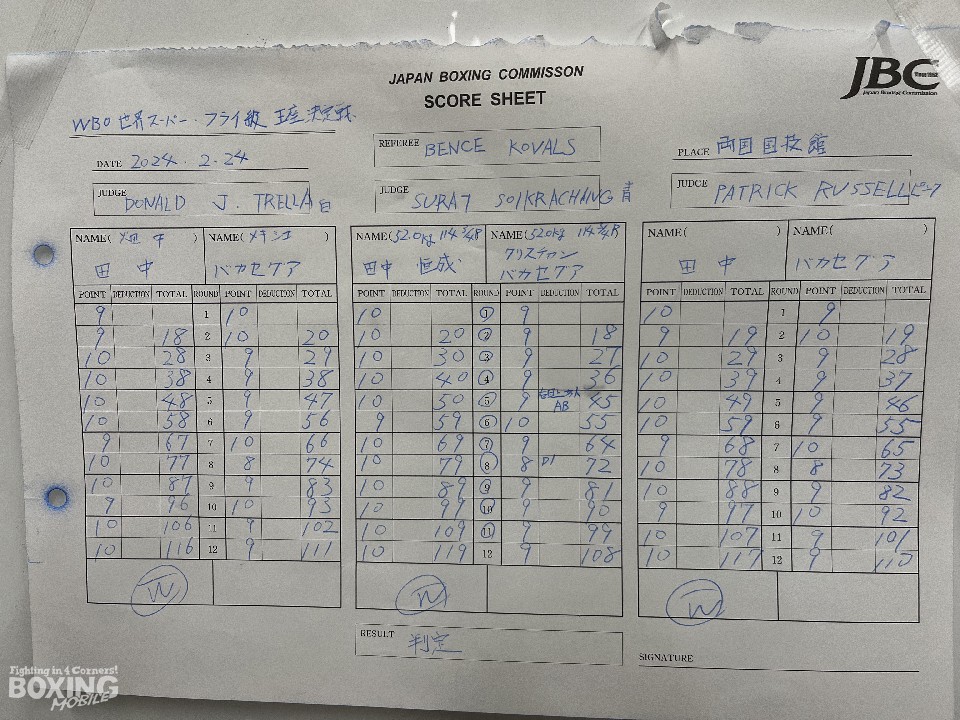 JAPAN BOXING COMMISSON
SCORE SHEET
JBC
Japan Boxing Commission
WBO 世界スーパー・フライ級 王座決定戦
DATE 2024.2.24
REFEREE BENCE KOVALS
PLACE 両国国技館
JUDGE DONALD J. TRELLA 白
JUDGE SURAT SOIKRACHANG 青
JUDGE PATRICK RUSSELL ピンク
NAME( 畑中 ) NAME( メキシコ ) NAME( 52.0kg 114 3/4 NAME( 52.0kg 114 3/4 NAME( ) NAME( )
田中 バカセグア 田中 恒成 クリスチャン バカセグア 田中 バカセグア
POINT DEDUCTION TOTAL ROUND POINT DEDUCTION TOTAL POINT DEDUCTION TOTAL ROUND POINT DEDUCTION TOTAL POINT DEDUCTION TOTAL ROUND POINT DEDUCTION TOTAL
9 1 10 10 1 9 10 1 9
9 18 2 10 20 10 20 2 9 18 9 19 2 10 19
10 28 3 9 29 10 30 3 9 27 10 29 3 9 28
10 38 4 9 38 10 40 4 9 36 10 39 4 9 37
10 48 5 9 47 10 50 5 9 AB 45 10 49 5 9 46
10 58 6 9 56 9 59 6 10 55 10 59 6 9 55
9 67 7 10 66 10 69 7 9 64 9 68 7 10 65
10 77 8 8 74 10 79 8 8 D1 72 10 78 8 8 73
10 87 9 9 83 10 89 9 9 81 10 88 9 9 82
9 96 10 10 93 10 99 10 9 90 9 97 10 10 92
10 106 11 9 102 10 109 11 9 99 10 107 11 9 101
10 116 12 9 111 10 119 12 9 108 10 117 12 9 110
W W W
RESULT 判定
SIGNATURE
Fighting in 4 Corners!
BOXING
MOBILE